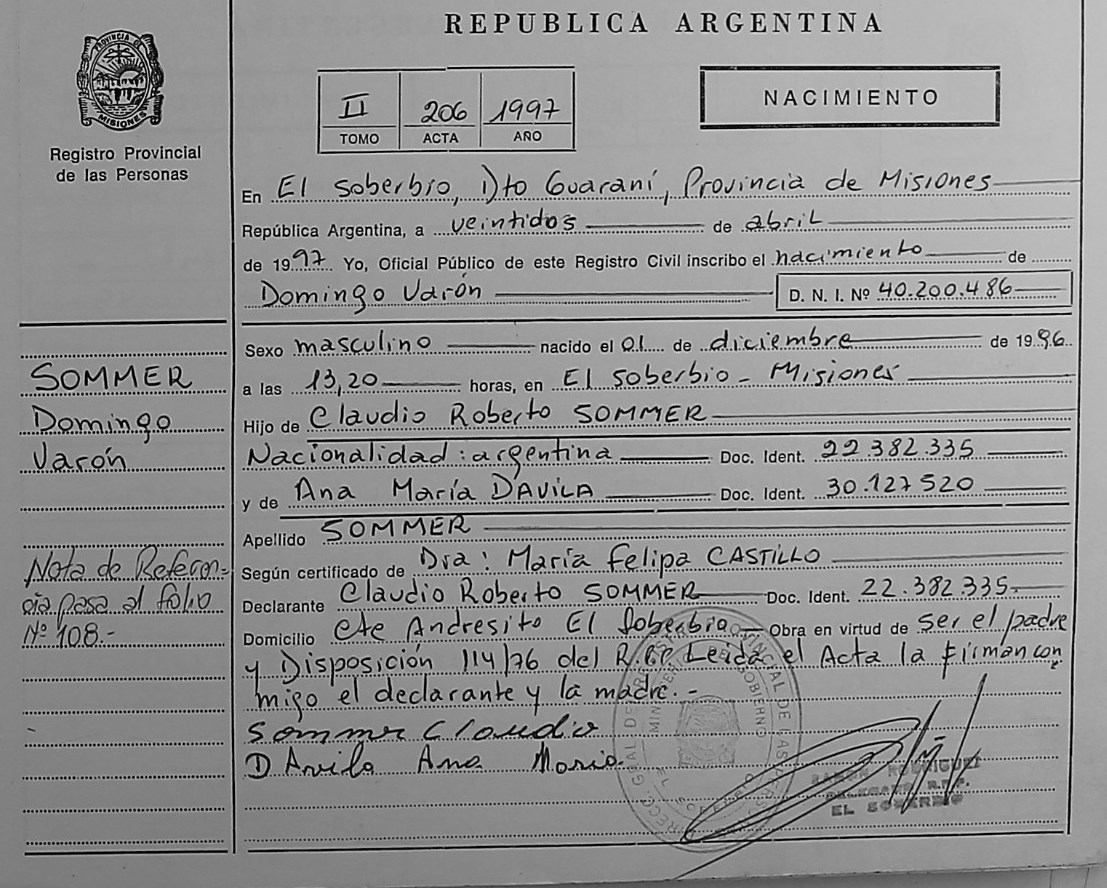 REPUBLICA ARGENTINA
PROVINCIA DE MISIONES
Registro Provincial
de las Personas
II 206 1997
TOMO ACTA AÑO
NACIMIENTO
En El Soberbio, Dto Guaraní, Provincia de Misiones
República Argentina, a veintidos de abril
de 1997 Yo, Oficial Público de este Registro Civil inscribo el nacimiento de
Domingo Varón D. N. I. Nº 40.200.486
Sexo masculino nacido el 01 de diciembre de 1996
a las 13,20 horas, en El Soberbio - Misiones
Hijo de Claudio Roberto SOMMER
Nacionalidad: argentina Doc. Ident. 22.382.335
y de Ana María DAVILA Doc. Ident. 30.127520
Apellido SOMMER
Según certificado de Dra: María Felipa CASTILLO
Declarante Claudio Roberto SOMMER Doc. Ident. 22.382.335.
Domicilio Cte Andresito El Soberbio Obra en virtud de ser el padre
y Disposición 114/76 del R.P.P. Leída el Acta la firman con
migo el declarante y la madre.-
Sommer Claudio
D Avila Ana Maria
RAMON RODRIGUEZ
DELEGADO R.P.P.
EL SOBERBIO
SOMMER
Domingo
Varón
Nota de Referen=
cia pasa al folio
Nº 108.-